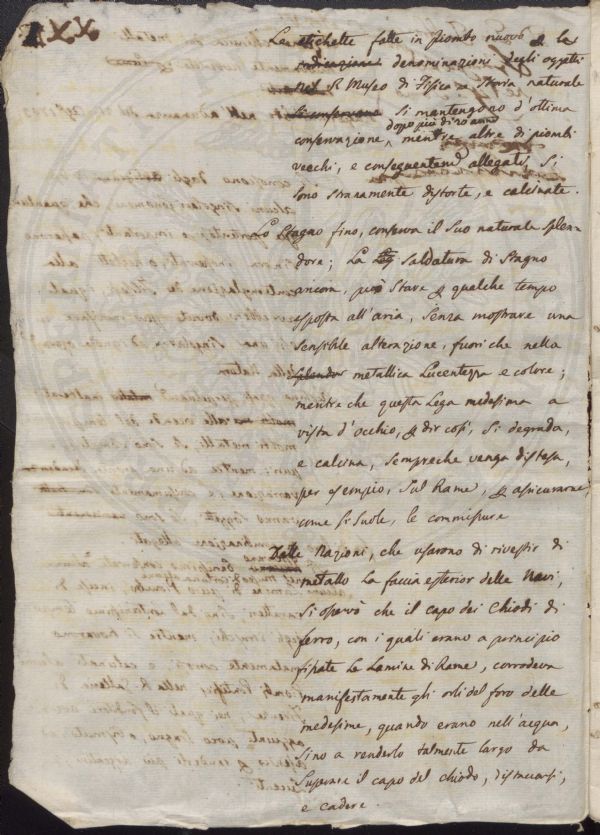 Le etichette fatte in piombo nuovo p le
indicazioni denominazioni degli oggetti
nel R Museo di Fisica e Storia naturale
si conservano si mantengono d'ottima
dopo più di 20 anni
conservazione, mentre altre di piombi
vecchi, e consequentemte allegati, si
sono stranamente distorte, e calcinate.
Lo Stagno fino, conserva il suo naturale splen-
dore; La Leg Saldatura di Stagno
ancora, può stare p qualche tempo
esposta all'aria, senza mostrare una
sensibile alterazione, fuori che nella
splendor metallica Lucentezza e colore;
mentre che questa Lega medesima a
vista d'occhio, p dir così, si degrada,
e calcina, sempreche venga distesa,
per esempio, sul Rame, p assicurarne,
come si suole, le commissure
Dalle Nazioni, che usarono di rivestir di
metallo la faccia esterior delle Navi,
si osservò che il capo dei Chiodi di
ferro, con i quali erano a principio
fissate le Lamine di Rame, corrodeva
manifestamente gli orli del foro delle
medesime, quando erano nell'acqua,
sino a renderlo talmente largo da
superare il capo del chiodo, distaccarsi,
e cadere.